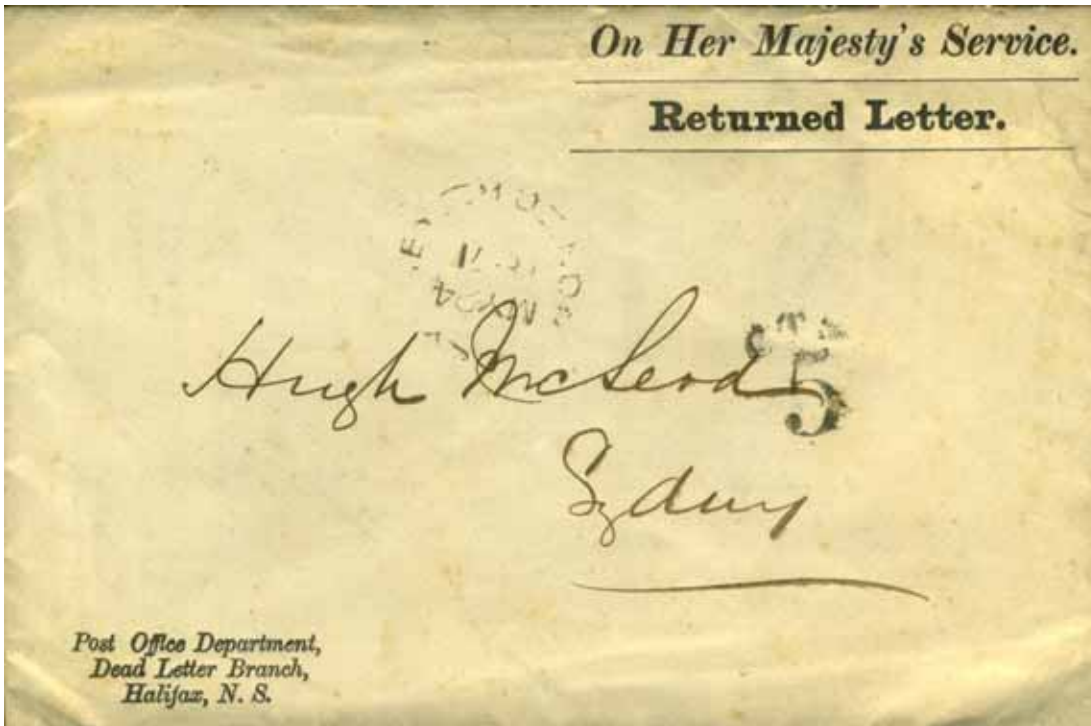 On Her Majesty's Service.
Returned Letter.
Hugh McLeod
5
Sydney
Post Office Department,
Dead Letter Branch,
Halifax, N. S.